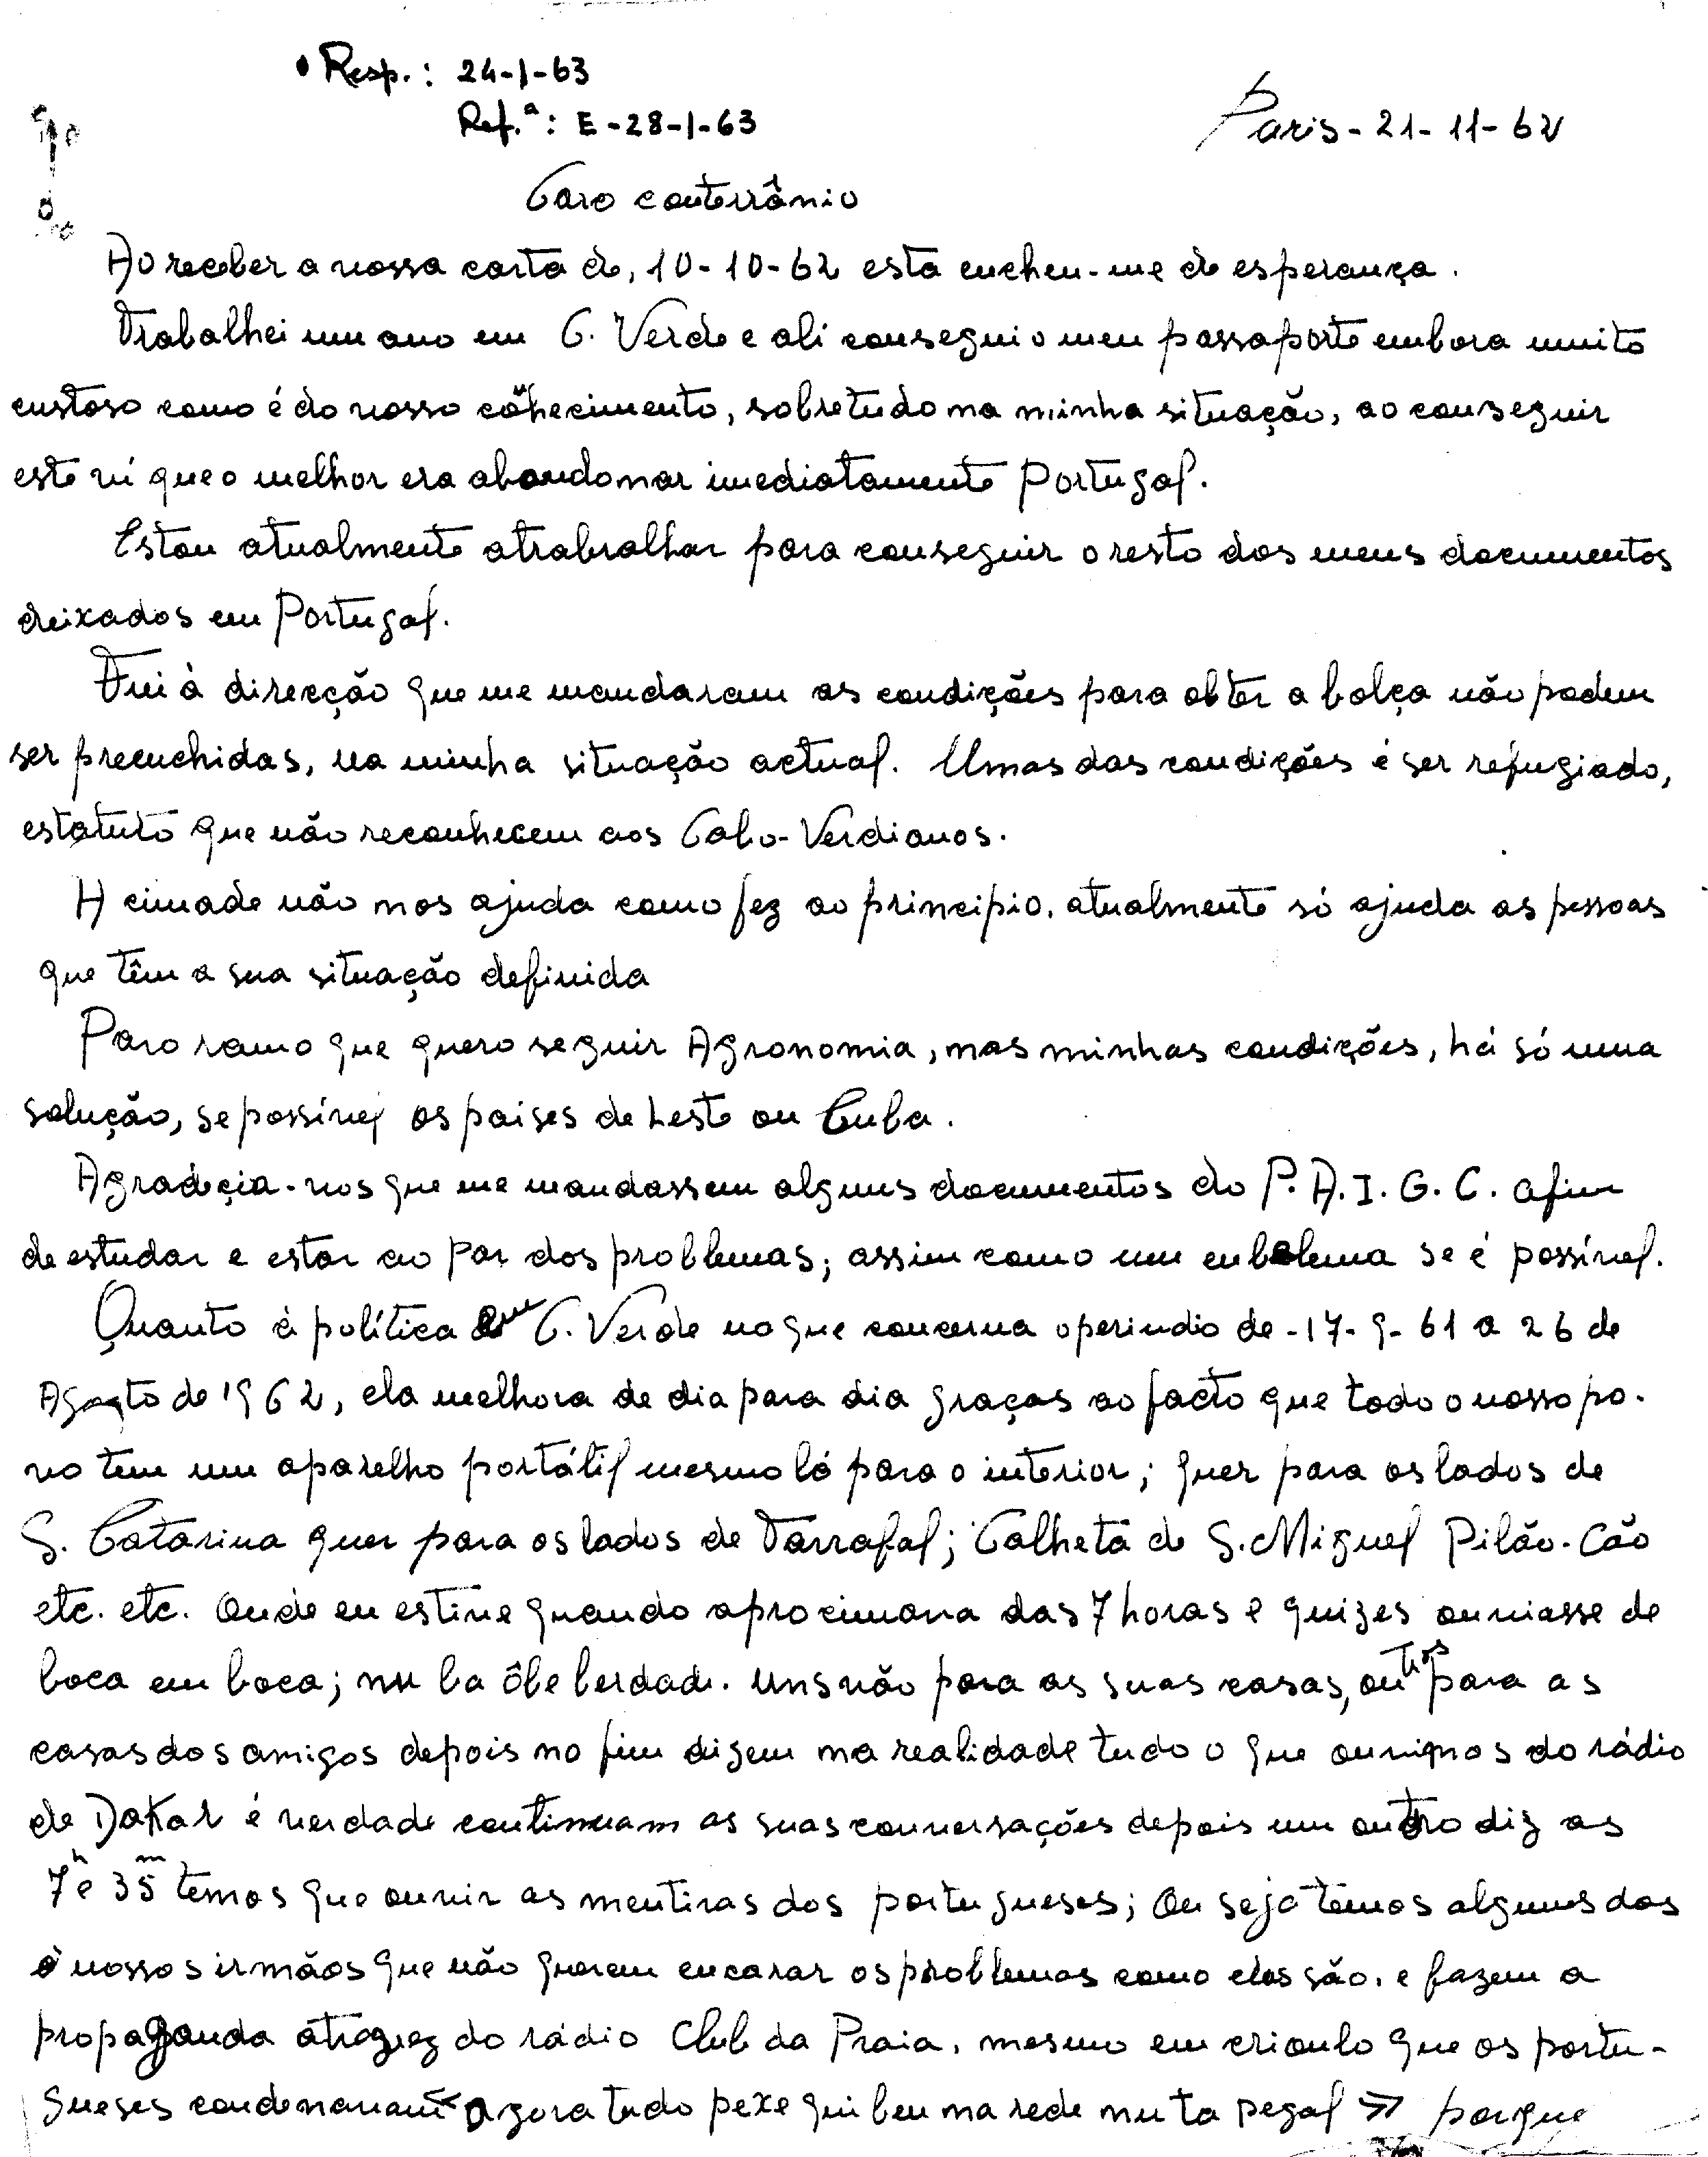 Resp.: 24-1-63
Ref.ª: E-28-1-63
Paris-21-11-62
Caro conterrânio
Ao receber a vossa carta de, 10-10-62 esta encheu-me de esperança.
Trabalhei um ano em C. Verde e ali consegui o meu passaporte embora muito
custoso como é do vosso conhecimento, sobretudo na minha situação, ao conseguir
este vi que o melhor era abandonar imediatamente Portugal.
Estou atualmente a trabralhar para conseguir o resto dos meus documentos
deixados em Portugal.
Fui à direcção que me mandaram as condições para obter a bolça não podem
ser preenchidas, na minha situação actual. Umas das condições é ser refugiado,
estatuto que não reconhecem aos Cabo-Verdianos.
A cimade não nos ajuda como fez ao principio. atualmente só ajuda as pessoas
que têm a sua situação definida
Para ramo que quero seguir Agronomia, nas minhas condições, há só uma
solução, se possível os paises de Leste ou Cuba.
Agradeçia-vos que me mandassem alguns documentos do P.A.I.G.C. afim
de estudar e estar ao par dos problemas; assim como um enblema se é possível.
Quanto à política em C. Verde no que concerna o perindio de -17-9-61 a 26 de
Agosto de 1962, ela melhora de dia para dia graças ao facto que todo o nosso po-
vo tem um aparelho portátil mesmo lá para o interior; quer para os lados de
S. Catarina quer para os lados de Tarrafal; Calheta de S. Miguel Pilão-Cão
etc. etc. Onde eu estive quando aprocimava das 7 horas e quizes ouviasse de
boca em boca; nu ba ôbe berdade. Uns vão para as suas casas, outros para as
casas dos amigos depois no fim dizem na realidade tudo o que ouvimos do rádio
de Dakar é verdade continuam as suas conversações depois um outro diz as
7h e 35m temos que ouvir as mentiras dos portugueses; Ou seja temos alguns dos
nossos irmãos que não querem encarar os problemas como elos são. e fazem a
propaganda atraguez do rádio Club da Praia. mesmo em crioulo que os portu-
gueses condenavam << agora tudo pexe qui ben na rede nu ta pegal >> porque